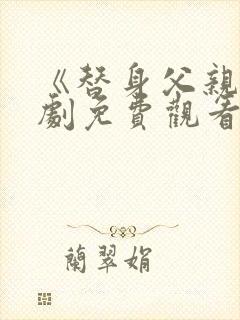 《替身父親
劇免費觀看
蘭翠娟